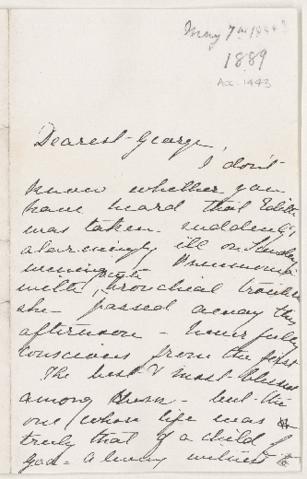 May 7th 1889
1889
Acc. 1443
Dearest George,
I don't
know whether you
have heard that Edith
was taken suddenly &
alarmingly ill on Sunday
with bronchial trouble
she passed away this
afternoon -
conscious from the first
The best & most blessed
among them - but the
one whose life was
truly that of a child of
God - a living witness to